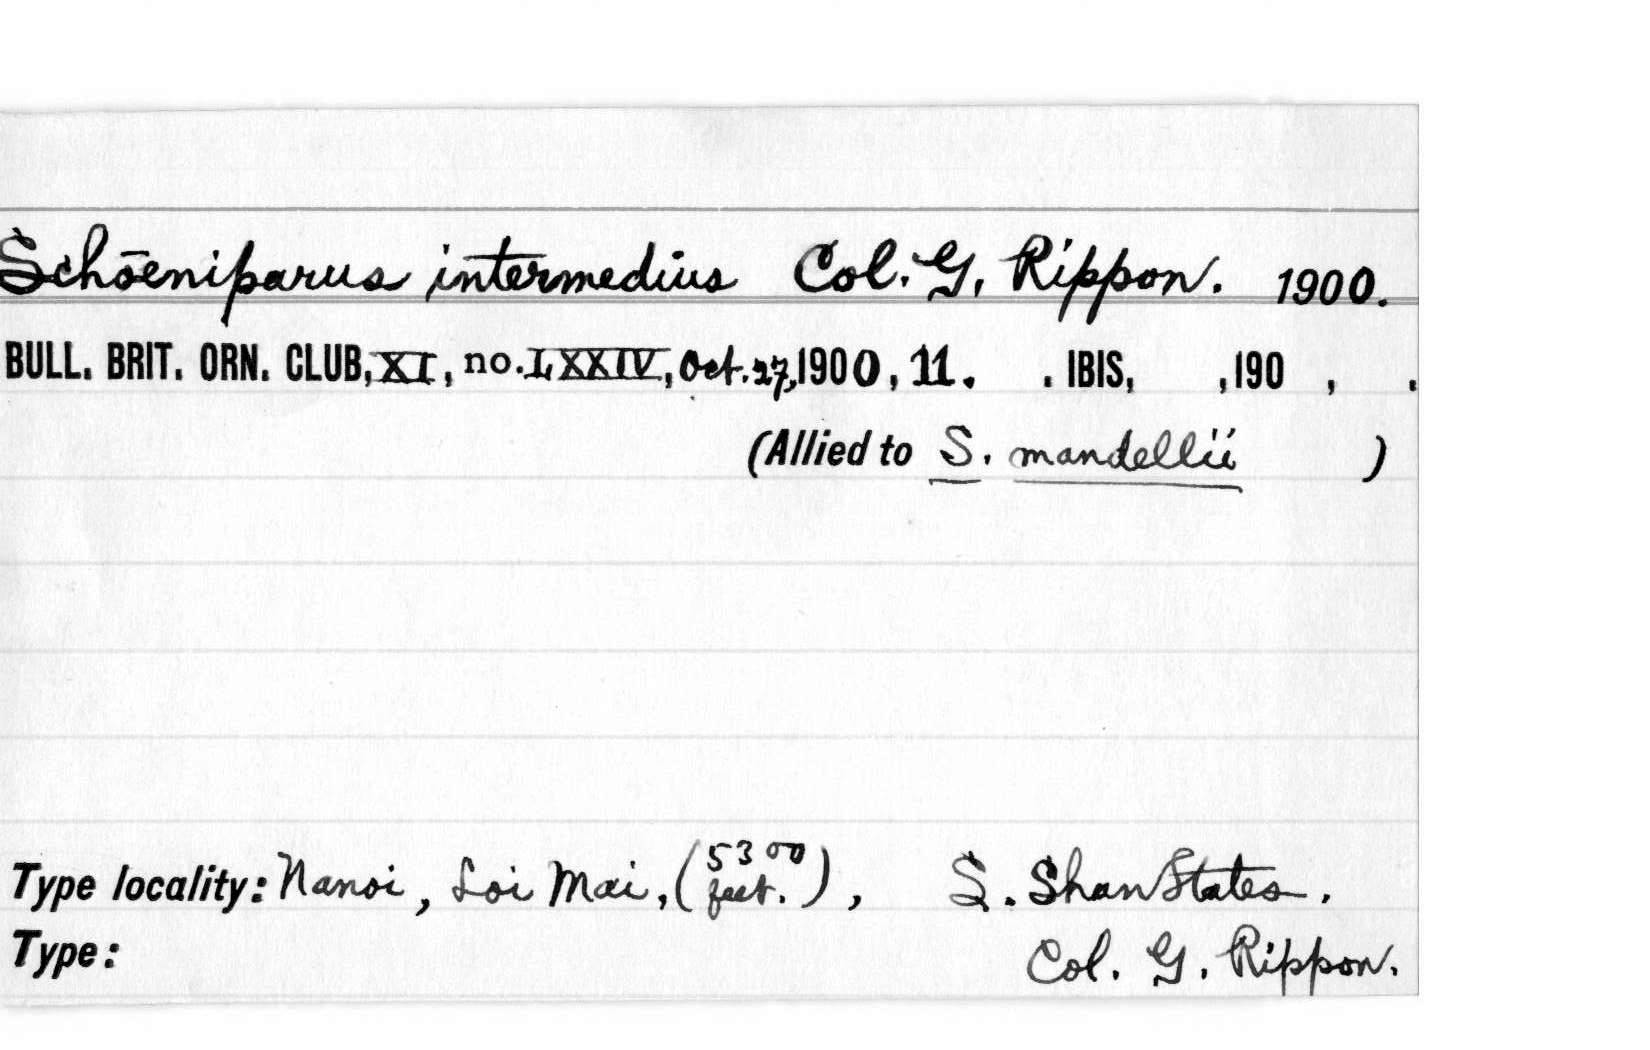 Schōeniparus intermedius Col. G. Rippon. 1900.
BULL. BRIT. ORN. CLUB, XI, no. LXXIV, Oct. 27, 1900, 11. . IBIS, , 190 , .
(Allied to S. mandellii )
Type locality: Nanoi, Loi Mai, (5300 feet.), S. Shan States.
Type: Col. G. Rippon.